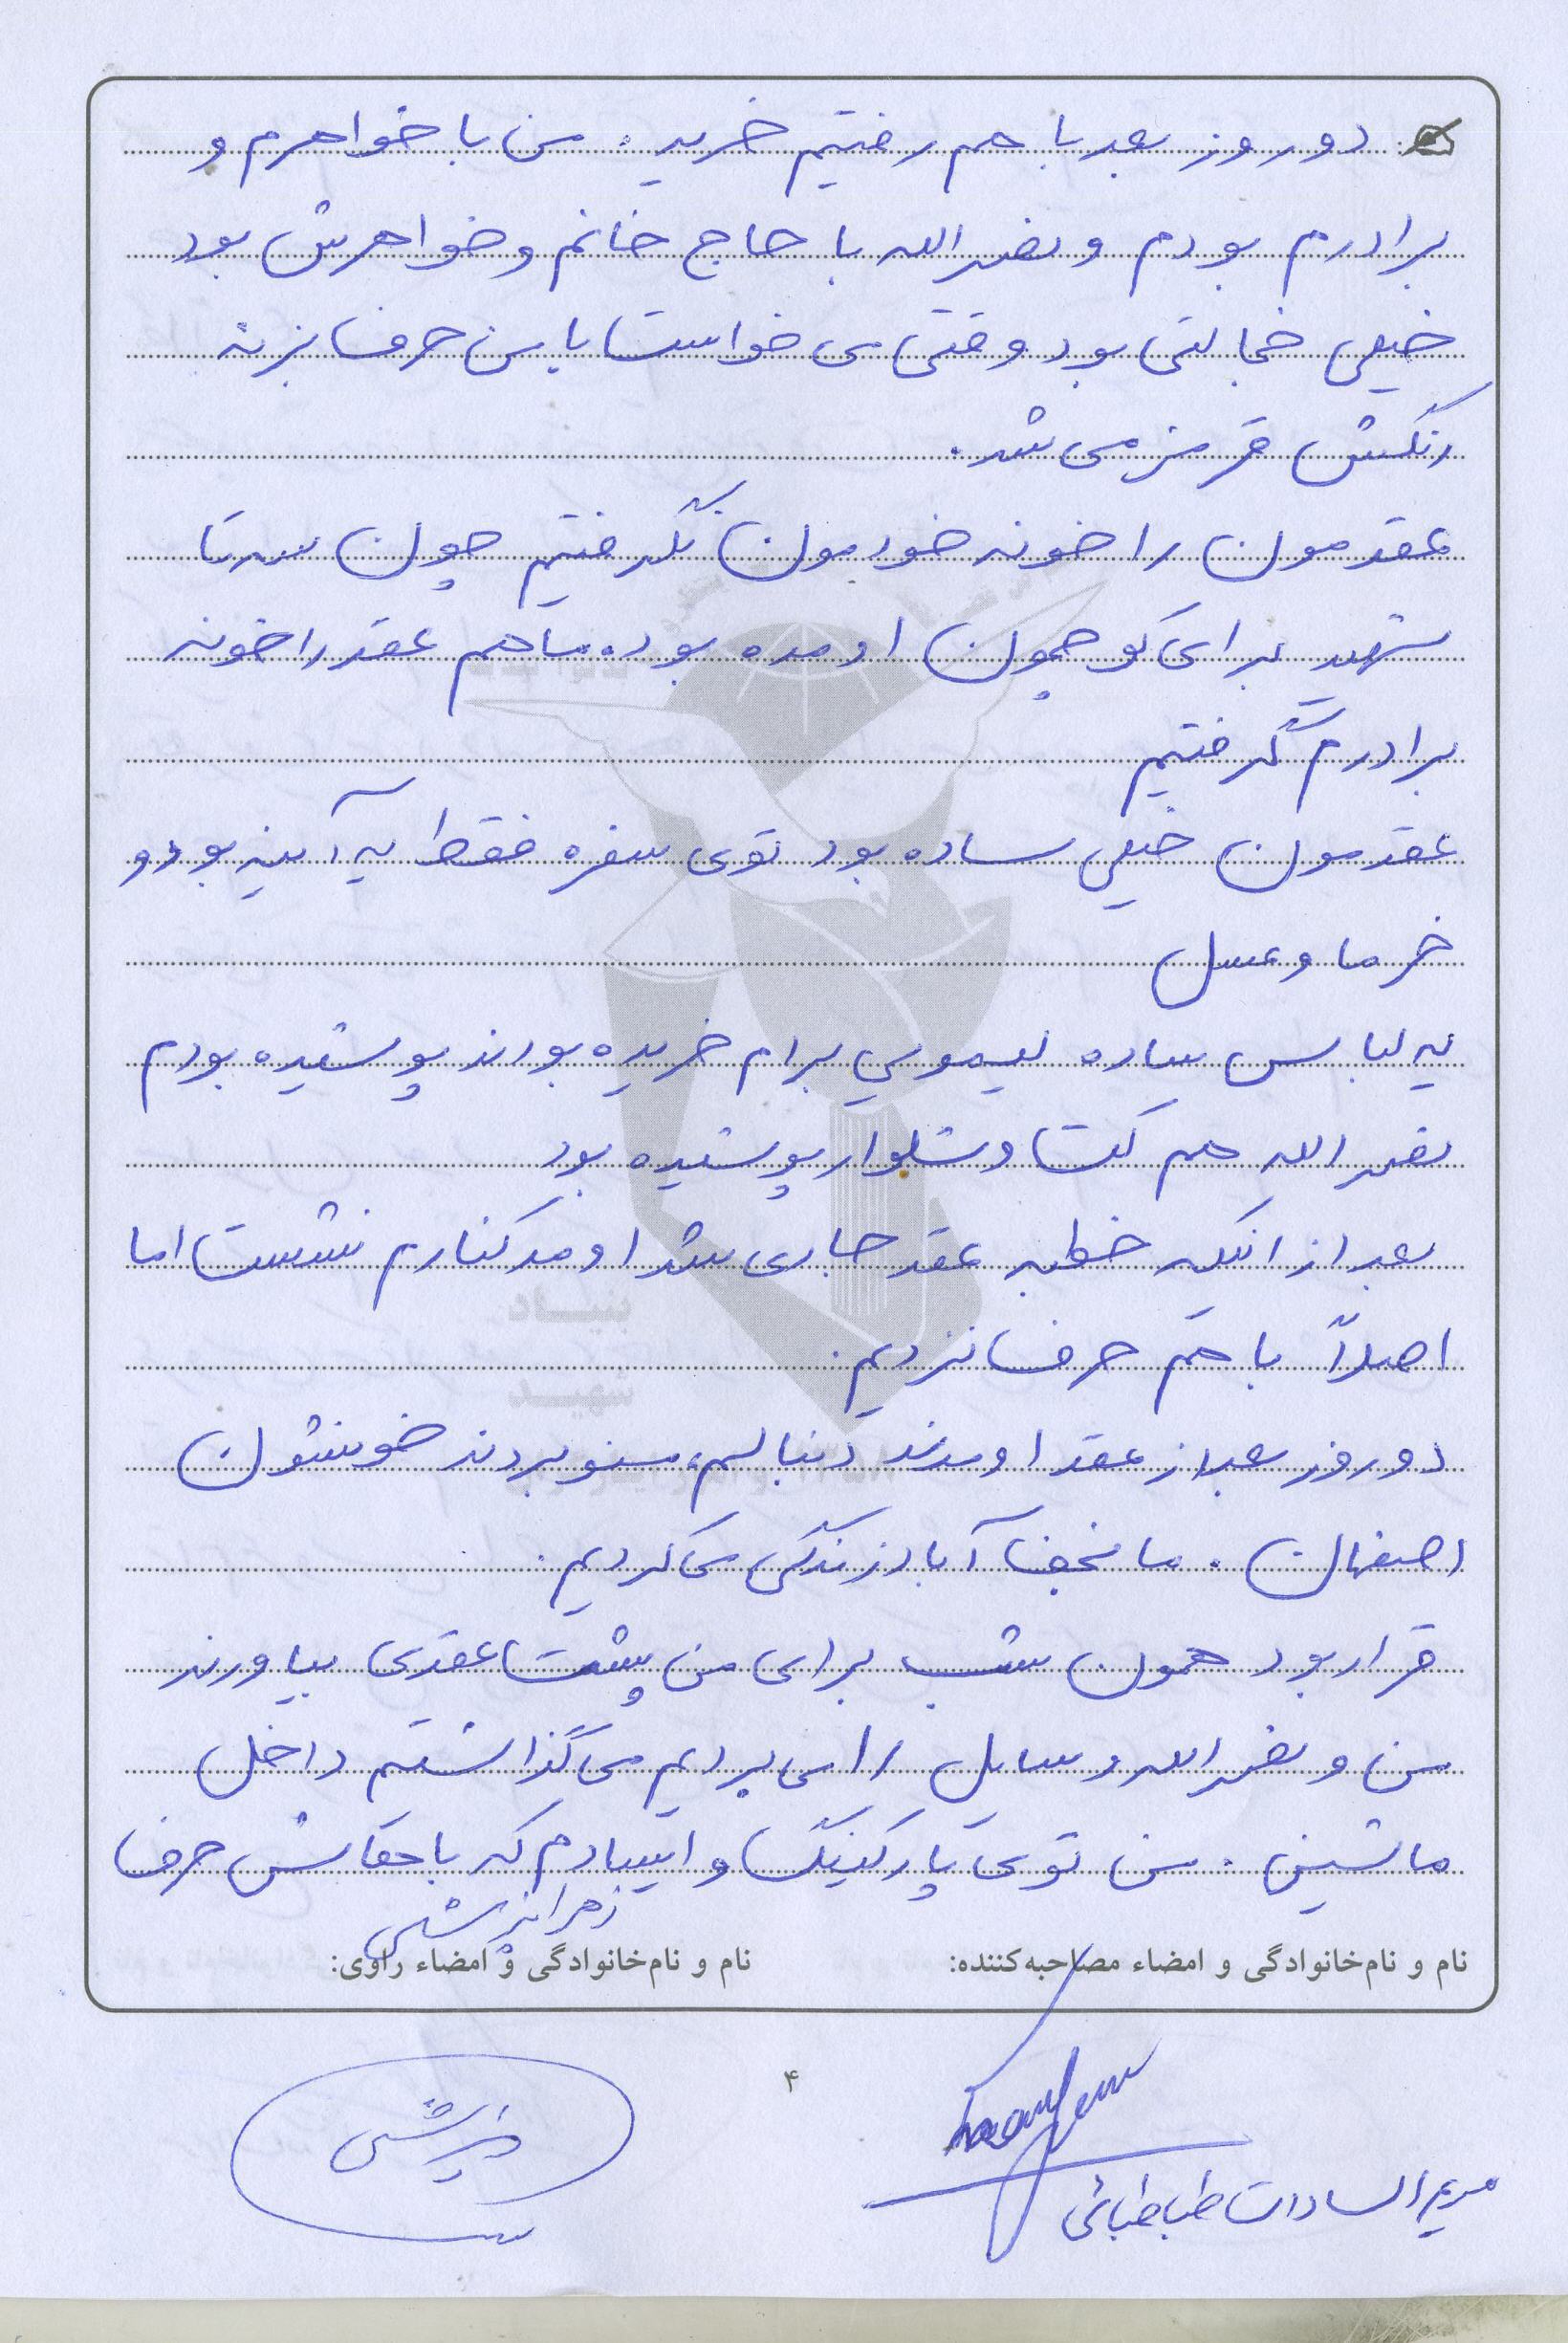 دو روز بعد با هم رفتیم خرید. من با خواهرم و
برادرم بودم و نصرالله با حاج خانم و خواهرش بود
خیلی خجالتی بود وقتی می خواست با من حرف بزنه
رنگش قرمز می شد.
عقدمون را خونه خودمون نگرفتیم چون سه تا
شهید برای کوچمون اومده بود. ما هم عقد را خونه
برادرم گرفتیم
عقدمون خیلی ساده بود توی سفره فقط یه آینه بود و
خرما و عسل
یه لباس ساده لیمویی برام خریده بودند پوشیده بودم
نصرالله هم کت و شلوار پوشیده بود
بعد از اینکه خطبه عقد جاری شد اومد کنارم نشست اما
اصلاً با هم حرف نزدیم.
دو روز بعد از عقد اومدند دنبالم، منو بردند خونشون
اصفهان. ما نجف آباد زندگی می کردیم.
قرار بود همون شب برای من پشت عقدی بیاورند
من و نصرالله وسایل را می بردیم می گذاشتیم داخل
ماشین. من توی پارکینگ وایسادم که باهاش حرف
نام و نام‌خانوادگی و امضاء مصاحبه‌کننده:
نام و نام‌خانوادگی و امضاء راوی:
۴
مریم السادات طباطبائی
بنیاد
شهید